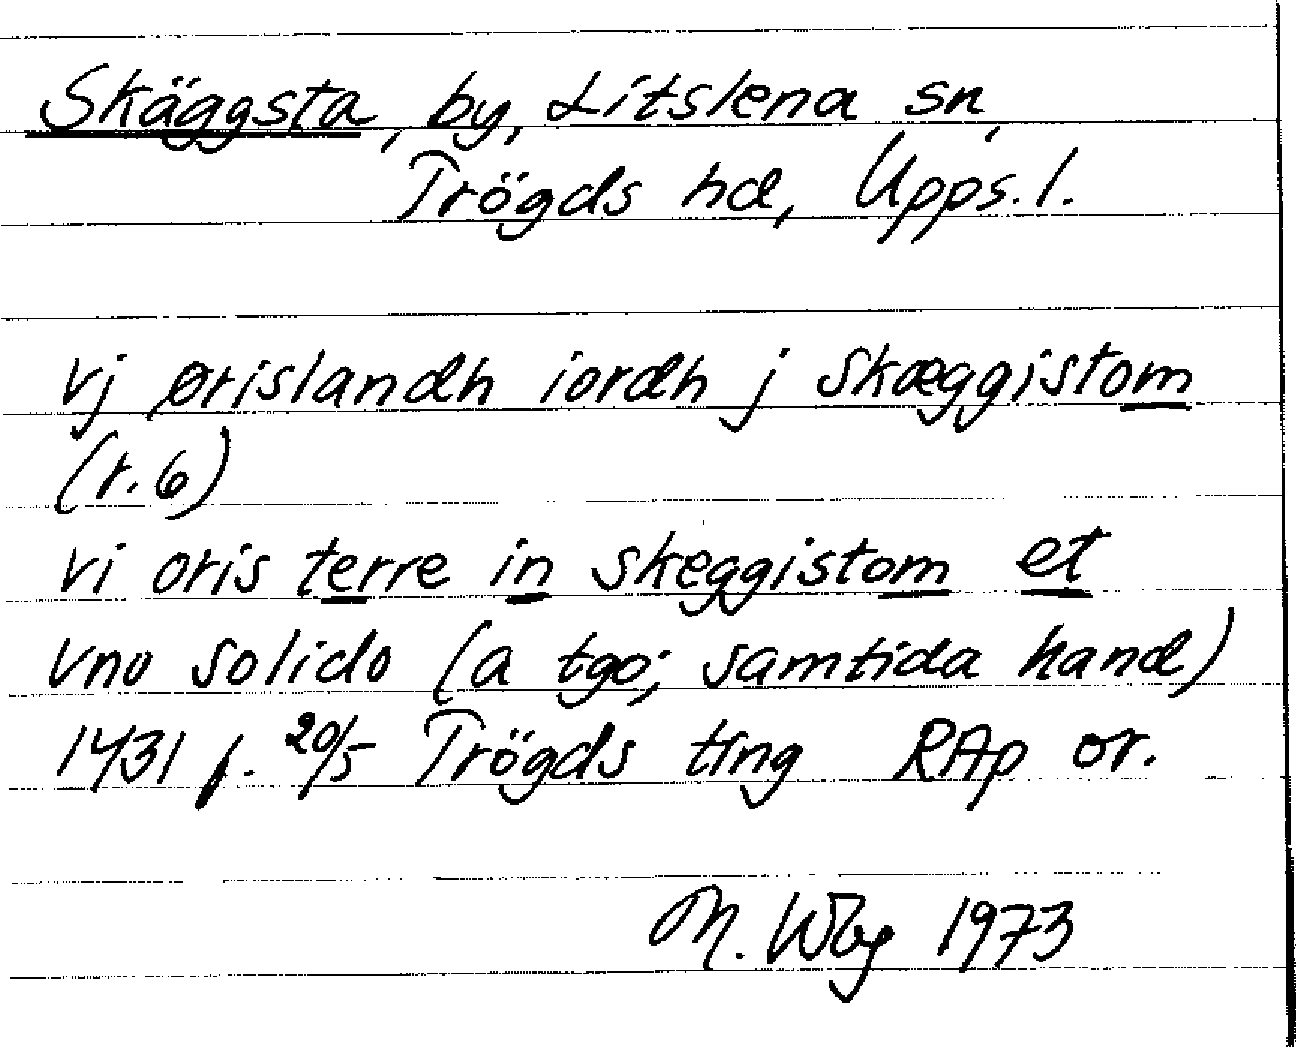 Skäggsta, by, Litslena sn,
Trögds hd, Upps. l.
vj ørislandh iordh j skæggistom
(r. 6)
vi oris terre in skeggistom et
vno solido (a tgo; samtida hand)
1431 f. 20/5 Trögds ting RAp or.
M. Wbg 1973